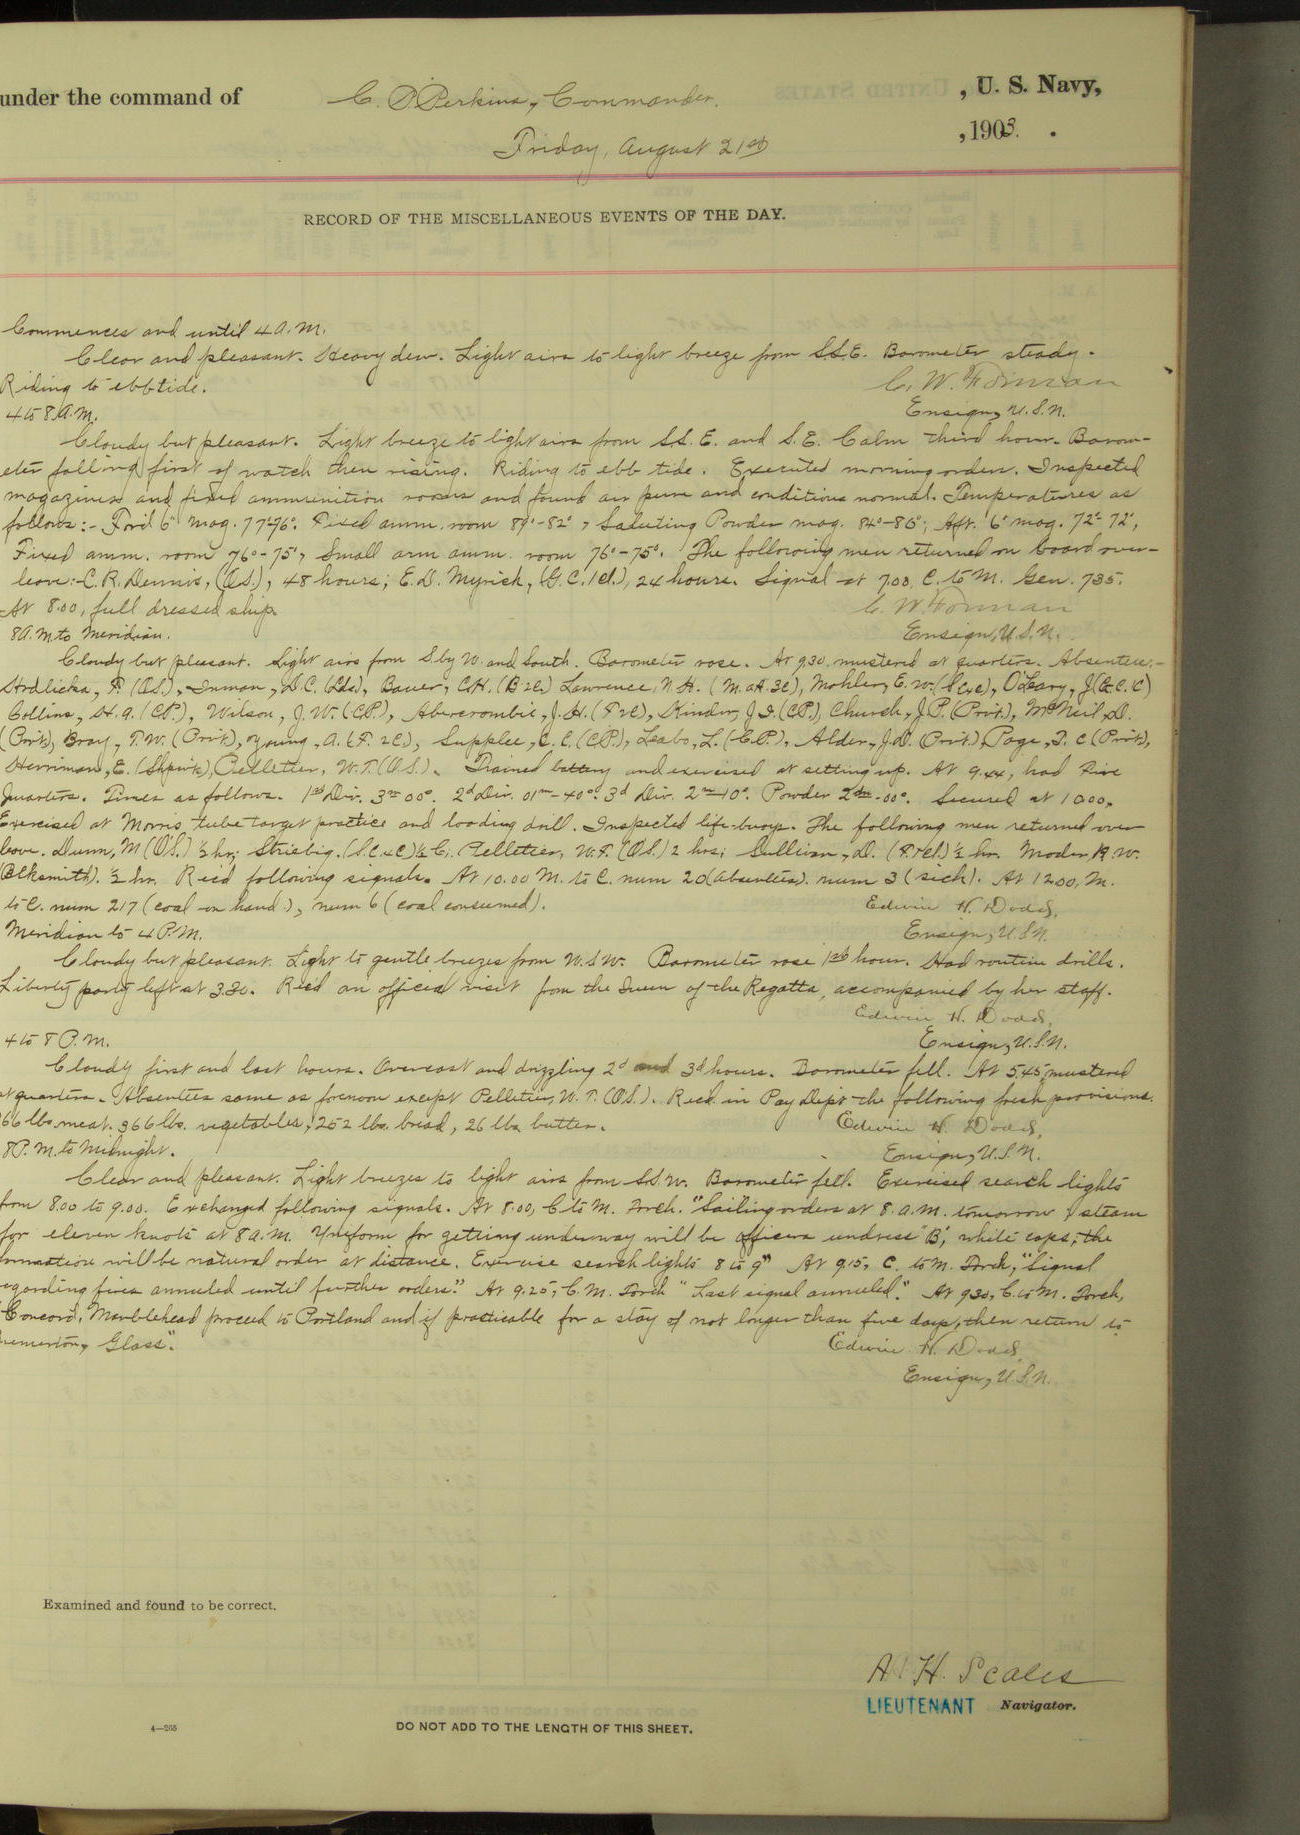 under the command of C. P. Perkins, Commander. , U. S. Navy,
Friday, August 21st , 1903.
RECORD OF THE MISCELLANEOUS EVENTS OF THE DAY.
Commences and until 4 A.M.
Clear and pleasant. Heavy dew. Light airs to light breeze from S.S.E. Barometer steady.
Riding to ebb tide. C. W. Forman
4 to 8 A.M. Ensign, U.S.N.
Cloudy but pleasant. Light breeze to light airs from S.S.E. and S.E. Calm third hour. Barom-
eter falling first of watch then rising. Riding to ebb tide. Executed morning orders. Inspected
magazines and fixed ammunition rooms and found air pure and conditions normal. Temperatures as
follows:- Ford 6" mag. 77°-76°. Fixed amm. room 89°-82°, Saluting Powder mag. 84°-86°; Aft. 6" mag. 72°-72°,
Fixed amm. room 76°-75°, Small arm amm. room 76°-75°. The following men returned on board over-
leave:- C. R. Dennis, (O.S.), 48 hours; E. D. Myrick, (G.C. 1cl.), 24 hours. Signal at 7.00, C. to M. Gen. 735.
At 8.00, full dressed ship. C. W. Forman
8 A.M. to Meridian. Ensign, U.S.N.
Cloudy but pleasant. Light airs from S. by W. and South. Barometer rose. At 9.30, mustered at quarters. Absentees:-
Hrdlicka, F. (O.S.), Inman, D.C. (Lds), Bauer, C.H. (B 2c) Lawrence, N.H. (M. at A. 3c), Mohler, E.W. (S.C. 4c), O'Leary, J (G.C.C)
Collins, H.A. (C.P.), Wilson, J.W. (C.P.), Abercrombie, J.H. (F 2c), Kinder, J.I. (C.P.), Church, J.P. (Privt.), McNeil, D.
(Privt), Bray, T.W. (Privt), Young, A. (F. 2c), Supplee, C.C. (C.P.), Leabo, L. (C.P.), Alder, J.D. (Privt.), Page, T.C (Privt),
Herriman, E. (Shpwt), Pelletier, W.T. (O.S.). Trained battery and exercised at setting up. At 9.44, had Fire
Quarters. Times as follows. 1st Div. 3m 00s. 2d Div. 01m-40s. 3d Div. 2m-10s. Powder 2m-00s. Secured at 10.00.
Exercised at Morris tube target practice and loading drill. Inspected life-buoys. The following men returned over
leave. Dunn, M (O.S.) ½ hr; Striebig. (S.C. 4c) ½ Pelletier, W.T. (O.S.) 2 hrs; Sullivan, D. (F. 1cl) ½ hr. Moder, R.W.
(Blksmith). ½ hr. Rec'd following signals. At 10.00 M. to C. num 20 (absentees). num 3 (sick). At 12.00, M.
to C. num 217 (coal on hand), num 6 (coal consumed). Edwin H. Dodd,
Meridian to 4 P.M. Ensign, U.S.N.
Cloudy but pleasant. Light to gentle breezes from W.S.W. Barometer rose 1st hour. Had routine drills.
Liberty party left at 3.30. Rec'd an official visit from the Queen of the Regatta, accompanied by her staff.
Edwin H. Dodd,
4 to 8 P.M. Ensign, U.S.N.
Cloudy first and last hours. Overcast and drizzling 2d and 3d hours. Barometer fell. At 5.45, mustered
at quarters. Absentees same as forenoon except Pelletier, W.T. (O.S.). Rec'd. in Pay Dep't the following fresh provisions.
66 lbs meat. 366 lbs. vegetables, 252 lbs. bread, 26 lbs. butter. Edwin H. Dodd,
8 P.M. to Midnight. Ensign, U.S.N.
Clear and pleasant. Light breezes to light airs from S.S.W. Barometer fell. Exercised search lights
from 8.00 to 9.00. Exchanged following signals. At 8.00, C to M. Torch. "Sailing orders at 8. A.M. tomorrow, steam
for eleven knots at 8 A.M. Uniform for getting underway will be officers undress "B", white caps, the
formation will be natural order at distance. Exercise search lights 8 to 9" At 9.15, C. to M. Torch, "Signal
regarding fires annuled until further orders." At 9.25, C. M. Torch "Last signal annuled." At 9.30, C. to M. Torch,
"Concord, Marblehead proceed to Portland and if practicable for a stay of not longer than five days, then return to
Bremerton, Glass". Edwin H. Dodd,
Ensign, U.S.N.
Examined and found to be correct.
A. H. Scales
LIEUTENANT Navigator.
4—265
DO NOT ADD TO THE LENGTH OF THIS SHEET.